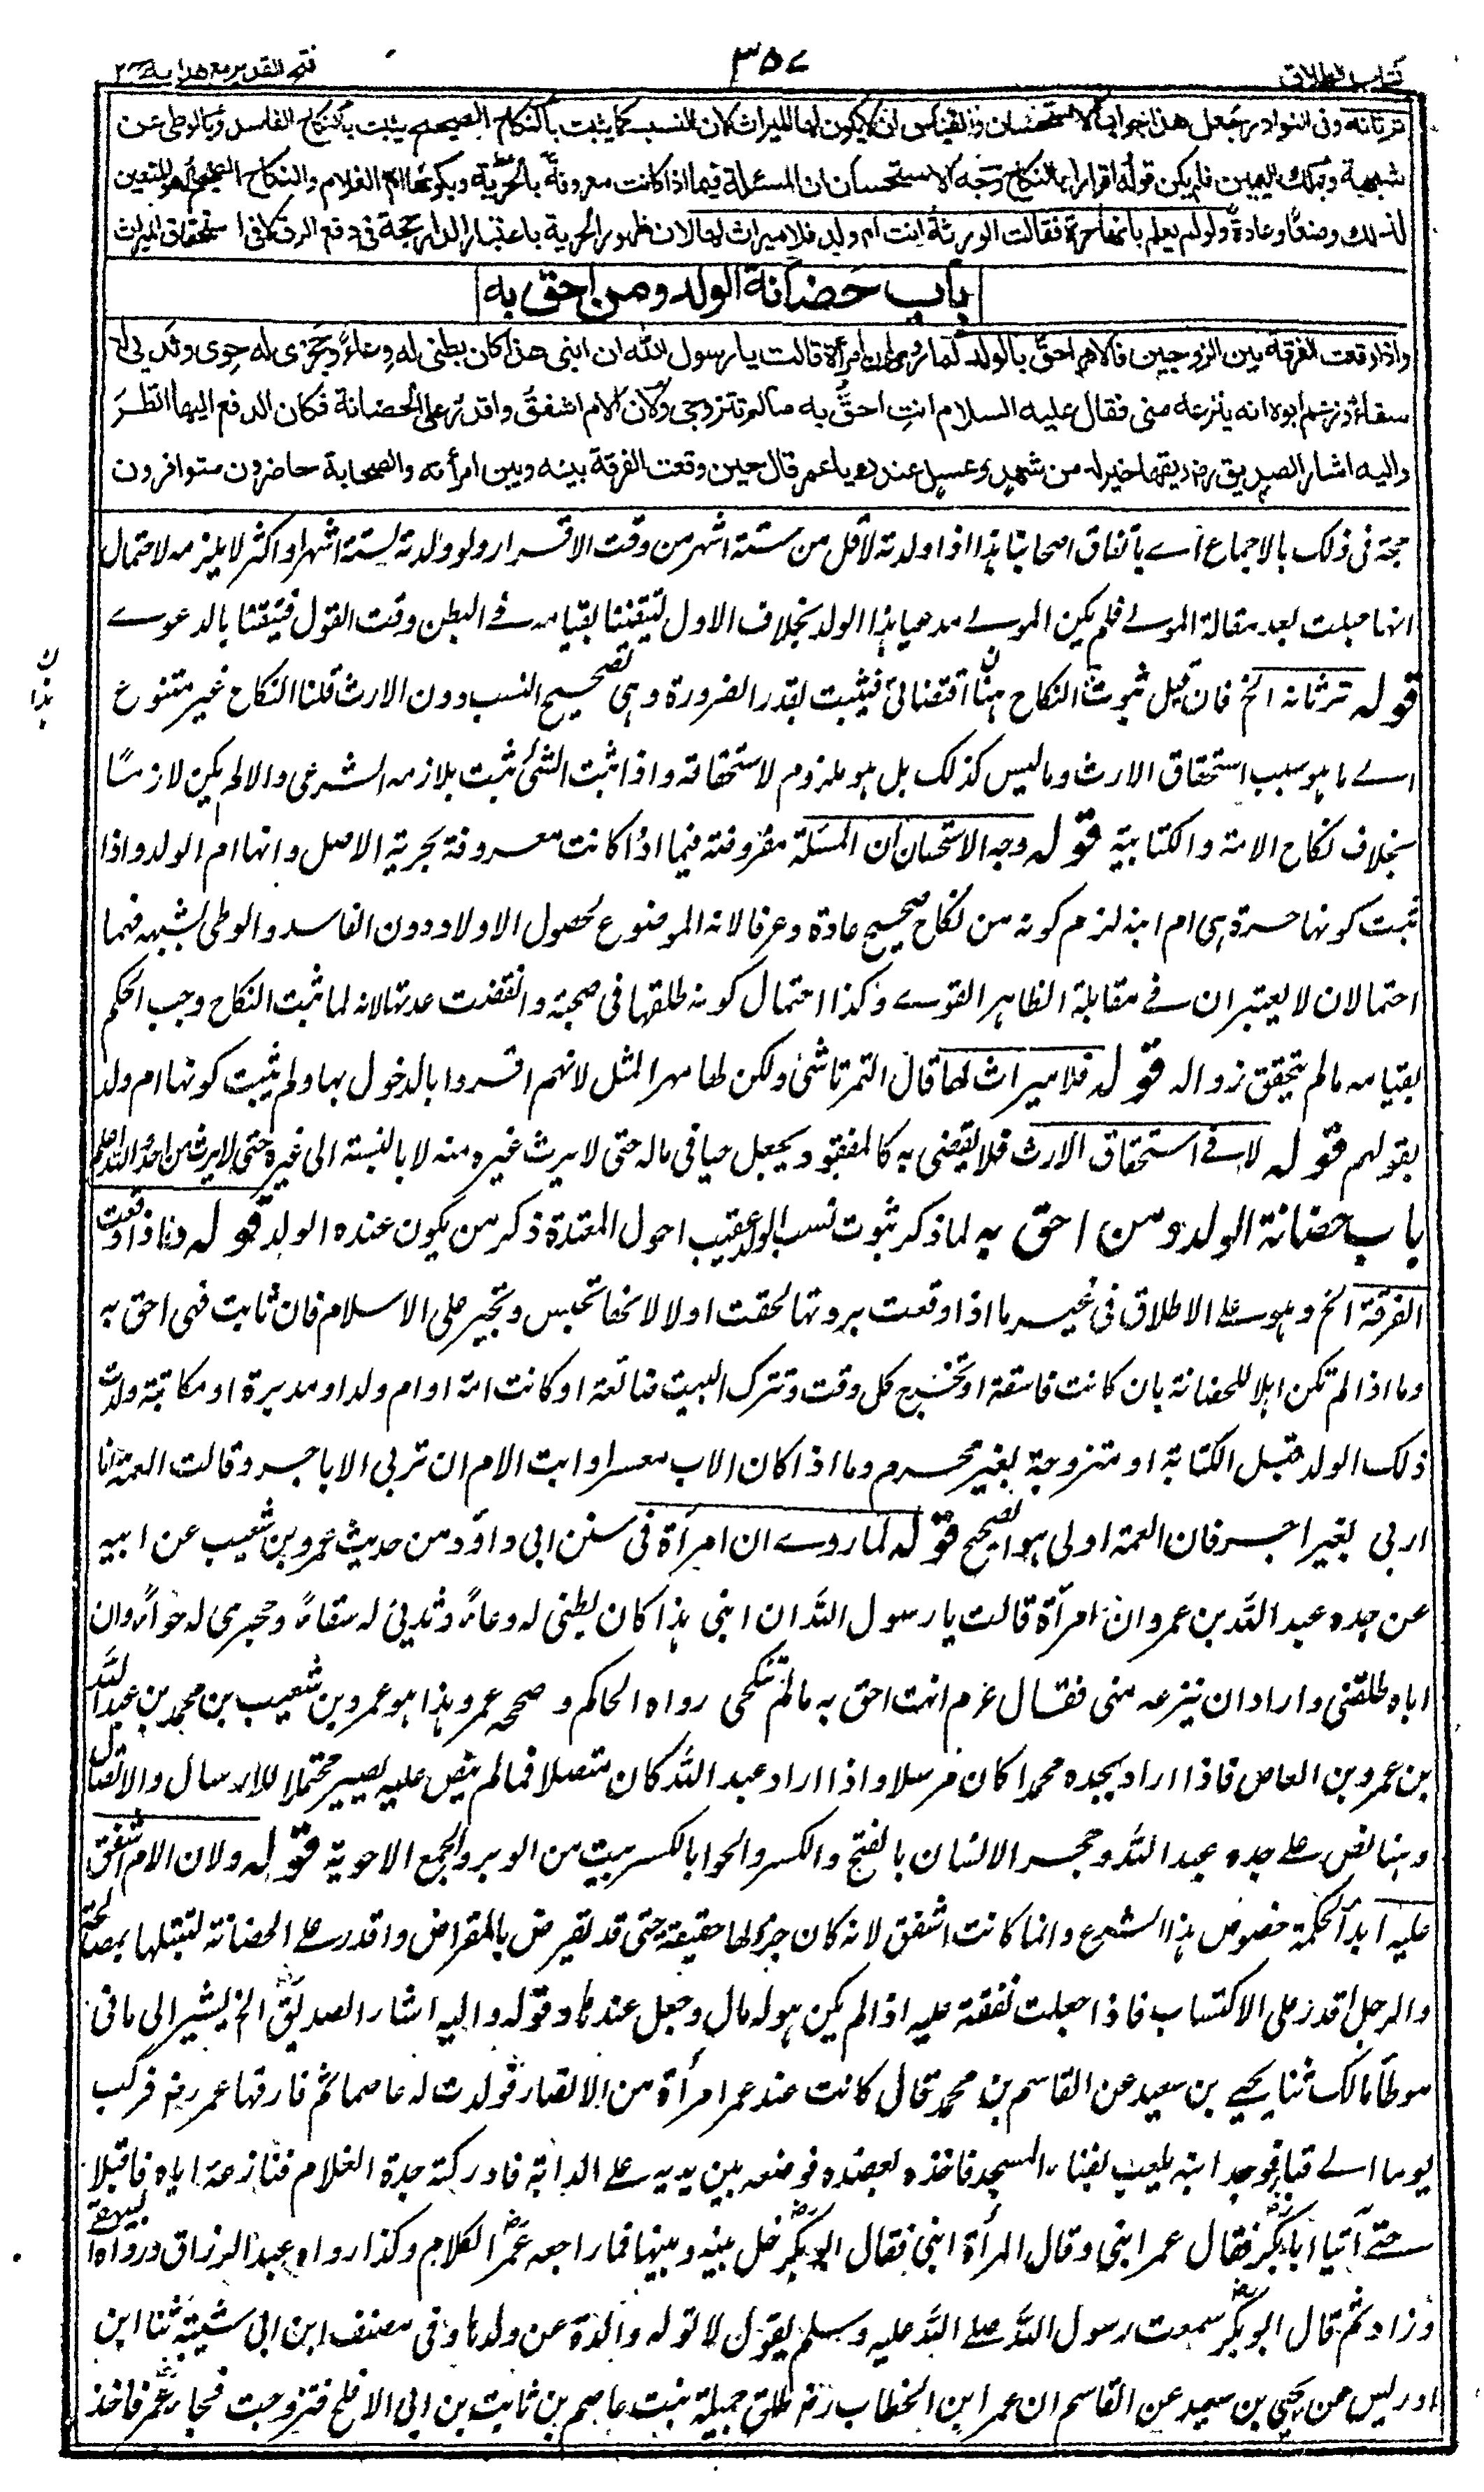 كتاب الطلاق
٣٥٧
فتح القدير مع هداية ج٢
ترثانه وفى النوادر جعل هذا جواب الاستحسان والقياس ان لا يكون لها الميراث لان النسب كما يثبت بالنكاح الصحيح يثبت بالنكاح الفاسد وبالوطى عن
شبهة وبملك اليمين فلم يكن قوله اقرارا بالنكاح وجه الاستحسان ان المسئلة فيما اذا كانت معروفة بالحرية وبكونها ام الغلام والنكاح الصحيح هو المتعين
لذلك وضعا وعادة ولو لم يعلم بانها حرة فقالت الورثة انت ام ولد فلا ميراث لها لان ظهور الحرية باعتبار الدار حجة فى دفع الرق لا فى استحقاق الميراث
باب حضانة الولد ومن احق به
واذا وقعت الفرقة بين الزوجين فالام احق بالولد لما روى ان امرأة قالت يا رسول الله ان ابنى هذا كان بطنى له وعاء وحجرى له حوى وثديى له
سقاء وزعم ابوه انه ينزعه منى فقال عليه السلام انت احق به مالم تتزوجى ولان الام اشفق واقدر على الحضانة فكان الدفع اليها انظر
واليه اشار الصديق رض ريقها خير له من شهد وعسل عندك يا عمر قال حين وقعت الفرقة بينه وبين امرأته والصحابة حاضرون متوافرون
حجة فى ذلك بالاجماع اے باتفاق اصحابنا هذا اذا ولدته لاقل من ستة اشهر من وقت الاقرار ولو ولدته لستة اشهر او اكثر لا يلزمه لاحتمال
انها حبلت بعد مقالة المولے فلم يكن المولے مدعيا هذا الولد بخلاف الاول لتيقننا بقيامه فے البطن وقت القول فتيقنا بالدعوے
قوله ترثانه الخ فان قيل ثبوت النكاح هنا اقتضائى فيثبت بقدر الضرورة وهى تصحيح النسب دون الارث قلنا النكاح غير متنوع
اے ما هو سبب استحقاق الارث وما ليس كذلك بل هو ملزوم لاستحقاقه واذا ثبت الشئ ثبت بلازمه الشرعى والا لم يكن لازما
بخلاف نكاح الامة والكتابية قوله وجه الاستحسان ان المسئلة مفروضة فيما اذا كانت معروفة بحرية الاصل وانها ام الولد واذا
ثبت كونها حرة هى ام ابنه لزم كونه من نكاح صحيح عادة وعرفا لانه الموضوع لحصول الاولاد دون الفاسد والوطى بشبهه فهما
احتمالان لا يعتبران فے مقابلة الظاهر القوے وكذا احتمال كونه طلقها فى صحته وانقضت عدتها لانه لما ثبت النكاح وجب الحكم
بقيامه مالم يتحقق زواله قوله فلا ميراث لها قال التمرتاشى ولكن لها مهر المثل لانهم اقروا بالدخول بها ولم يثبت كونها ام ولد
بقولهم قوله لا فے استحقاق الارث فلا يقضى به كالمفقود يجعل حيا فى ماله حتى لا يرث غيره منه لا بالنسبة الى غيره حتى لا يرث من احد والله اعلم
باب حضانة الولد ومن احق به لما ذكر ثبوت نسب الولد عقيب احوال المعتدة ذكر من يكون عنده الولد قوله واذا وقعت
الفرقة الخ وهو على الاطلاق فى غير ما اذا وقعت بردتها لحقت اولا لانها تحبس وتجبر على الاسلام فان تابت فهى احق به
وما اذا لم تكن اهلا للحضانة بان كانت فاسقة او تخرج كل وقت وتترك البيت ضائعة او كانت امة او ام ولد او مدبرة او مكاتبة ولدت
ذلك الولد قبل الكتابة او متزوجة بغير محرم وما اذا كان الاب معسرا وابت الام ان تربى الا باجر وقالت العمة انا
اربى بغير اجر فان العمة اولى هو الصحيح قوله لما روے ان امرأة فى سنن ابى داؤد من حديث عمرو بن شعيب عن ابيه
عن جده عبد الله بن عمرو ان امرأة قالت يا رسول الله ان ابنى هذا كان بطنى له وعاء وثديى له سقاء وحجرى له حواء وان
اباه طلقنى واراد ان ينزعه منى فقال عم انت احق به مالم تنكحى رواه الحاكم وصححه عمرو هذا هو عمرو بن شعيب بن محمد بن عبد الله
بن عمرو بن العاص فاذا اراد بجده محمدا كان مرسلا واذا اراد عبد الله كان متصلا فمالم ينص عليه يصير محتملا للارسال والاتصال
وهنا نص على جده عبد الله وحجر الانسان بالفتح والكسر والحوا بالكسر بيت من الوبر والجمع الاحوية قوله ولان الام اشفق
عليه ابدأ لحكمة خصوص هذا الشرع وانما كانت اشفق لانه كان جزؤا لها حقيقة حتى قد يقرض بالمقراض واقدر على الحضانة لتبتلها بمصالحه
والرجل اقدر على الاكتساب فلذا جعلت نفقته عليه اذا لم يكن هو له مال وجعل عندها وقوله واليه اشار الصديق الخ يشير الى ما فى
موطأ مالك ثنا يحيے بن سعيد عن القاسم بن محمد قال كانت عند عمر امرأة من الانصار فولدت له عاصما ثم فارقها عمر رض فركب
يوما الے قبا فوجد ابنه يلعب بفناء المسجد فاخذه بعضده فوضعه بين يديه على الدابة فادركته جدة الغلام فنازعته اياه فاقبلا
حتے اتيا ابا بكر فقال عمر ابنى وقال المرأة ابنى فقال ابو بكر خل بينه وبينها فما راجعه عمر الكلام وكذا رواه عبد الرزاق ورواه البيهقے
وزاد ثم قال ابو بكر سمعت رسول الله صلے الله عليه وسلم يقول لا توله والدة عن ولدها وفى مصنف ابن ابى شيبة ثنا ابن
ادريس عن يحيى بن سعيد عن القاسم ان عمر ابن الخطاب رض طلق جميلة بنت عاصم بن ثابت بن ابى الافلح فتزوجت فجاء عمر فاخذ